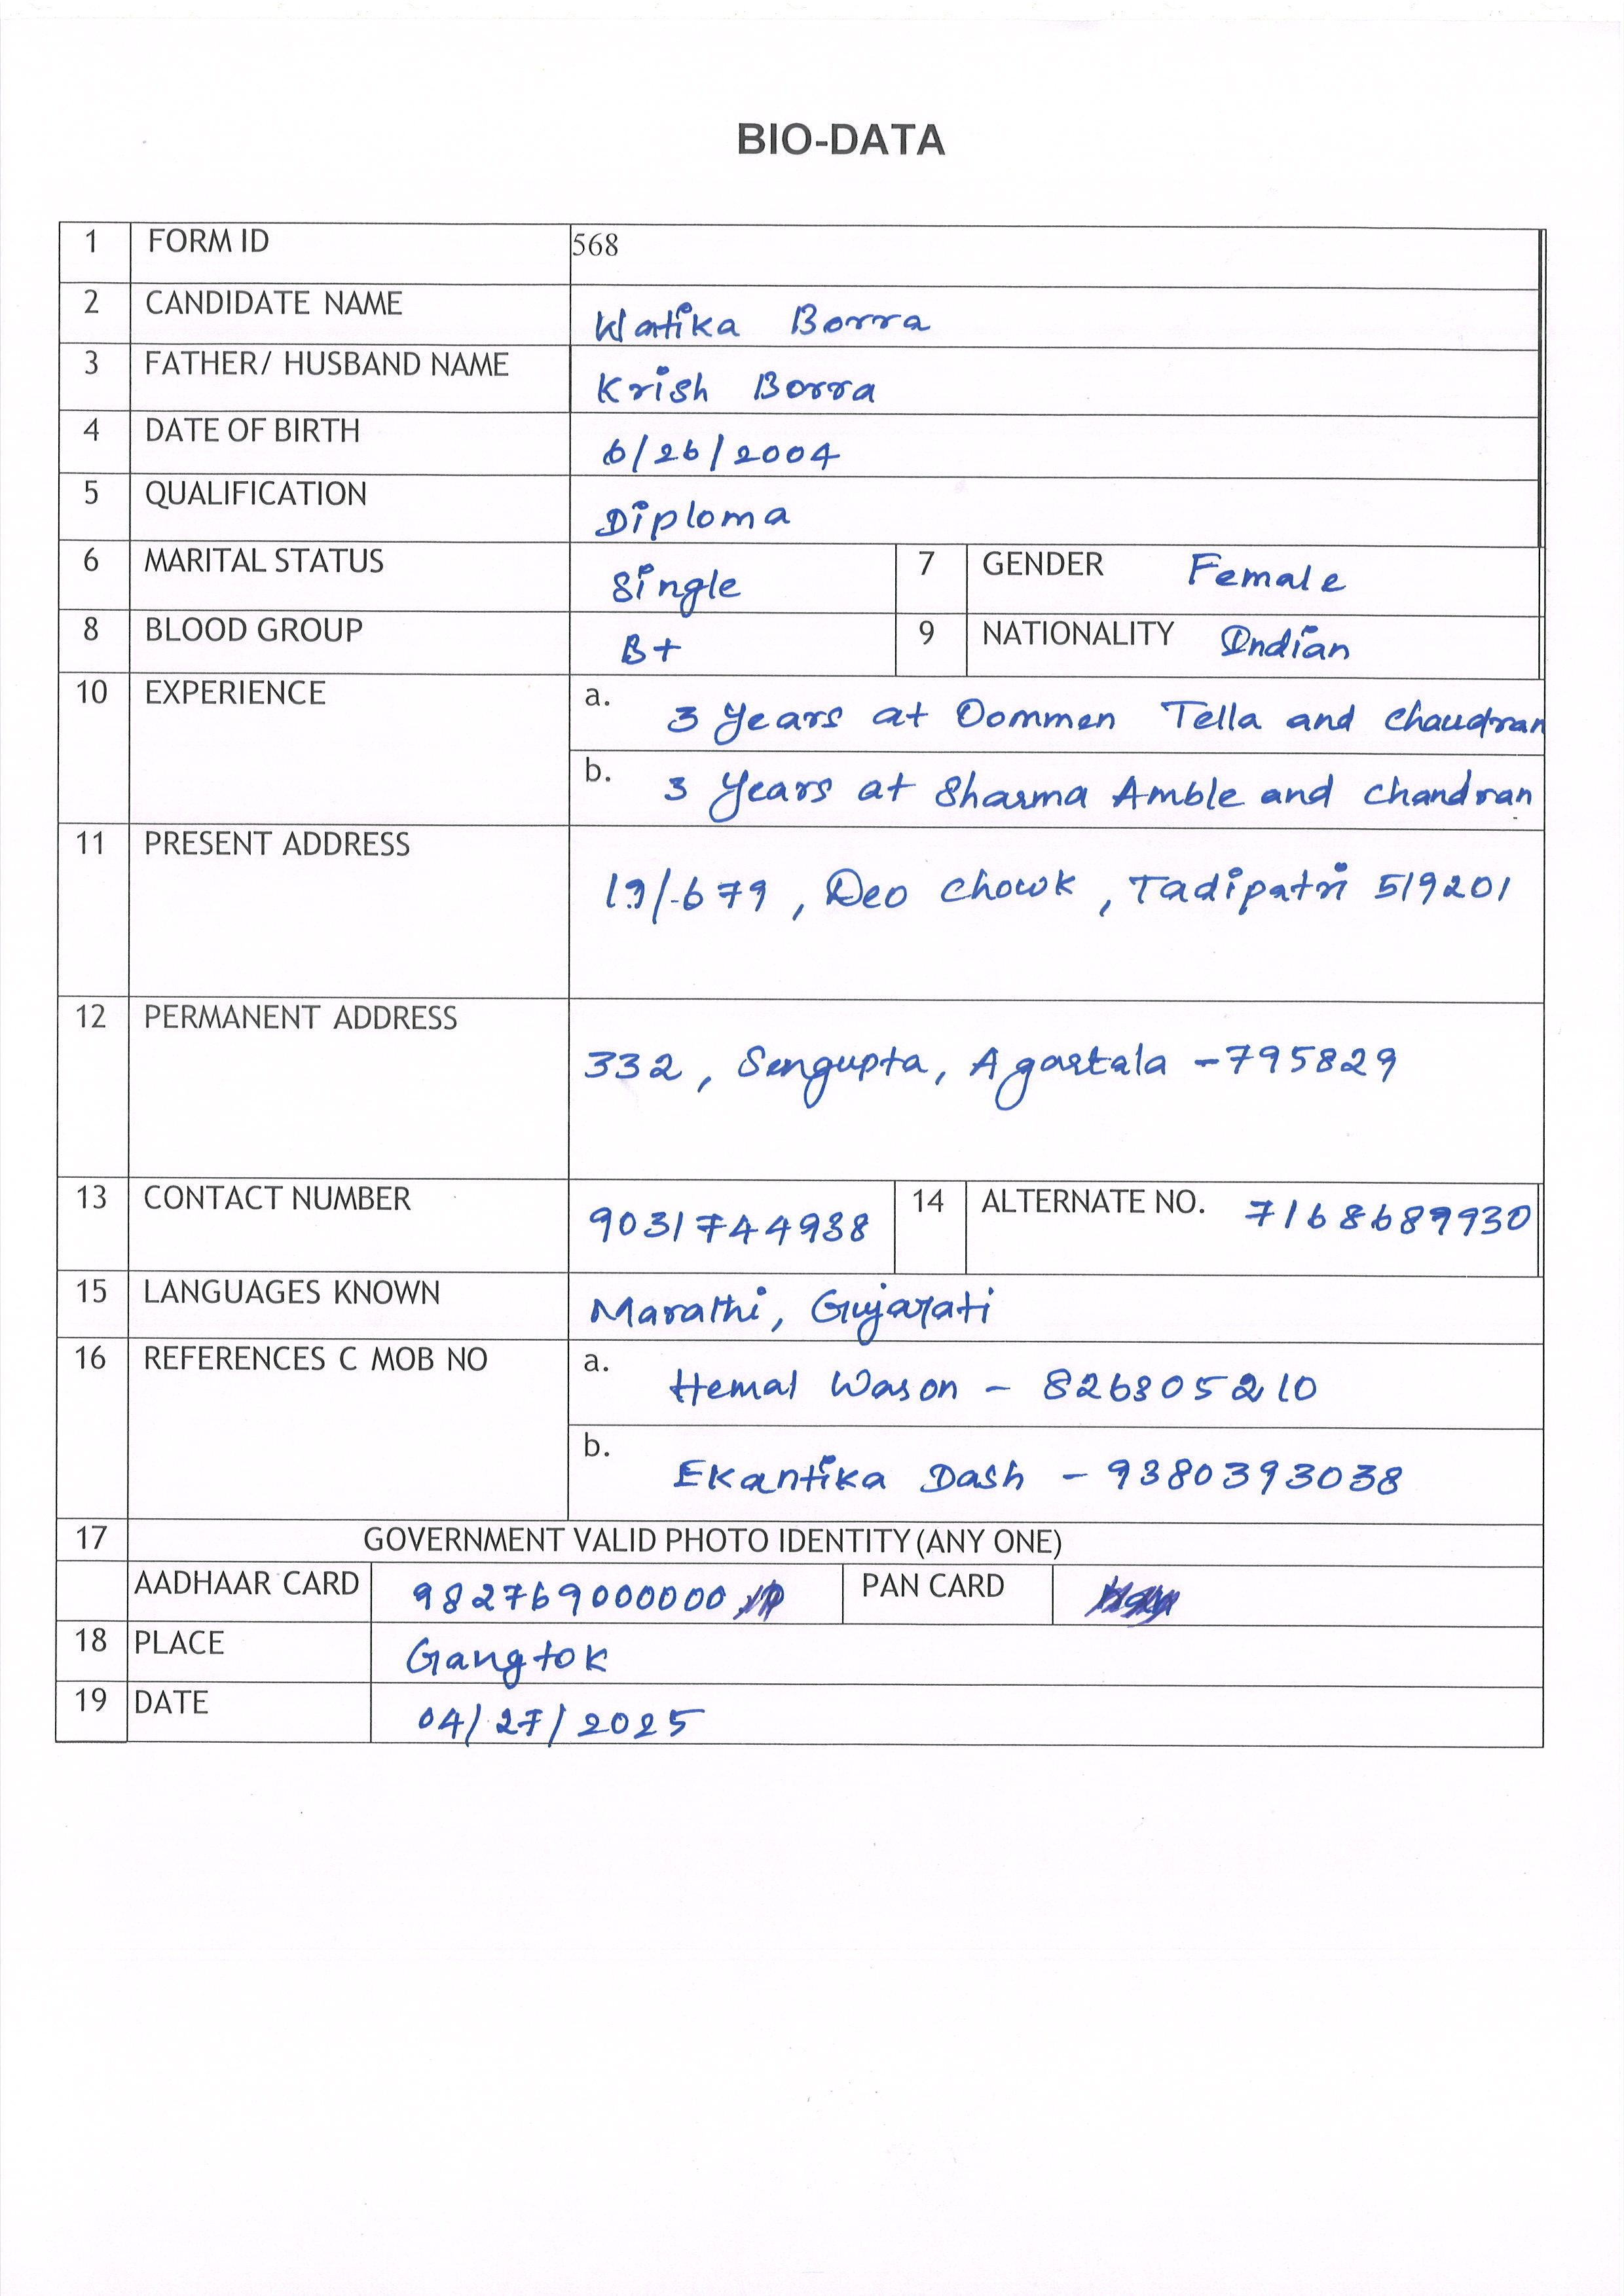 BIO-DATA
1 FORM ID 568
2 CANDIDATE NAME Watika Borra
3 FATHER/ HUSBAND NAME Krish Borra
4 DATE OF BIRTH 6/26/2004
5 QUALIFICATION Diploma
6 MARITAL STATUS Single 7 GENDER Female
8 BLOOD GROUP B+ 9 NATIONALITY Indian
10 EXPERIENCE a. 3 Years at Oommen Tella and Chaudran
b. 3 Years at Sharma Amble and Chandran
11 PRESENT ADDRESS 19/-679, Deo Chowk, Tadipatri 519201
12 PERMANENT ADDRESS 332, Sengupta, Agartala -795829
13 CONTACT NUMBER 9031744938 14 ALTERNATE NO. 7168689930
15 LANGUAGES KNOWN Marathi, Gujarati
16 REFERENCES C MOB NO a. Hemal Wason - 8268305210
b. Ekantika Dash - 9380393038
17 GOVERNMENT VALID PHOTO IDENTITY (ANY ONE)
AADHAAR CARD 982769000000 PAN CARD
18 PLACE Gangtok
19 DATE 04/27/2025